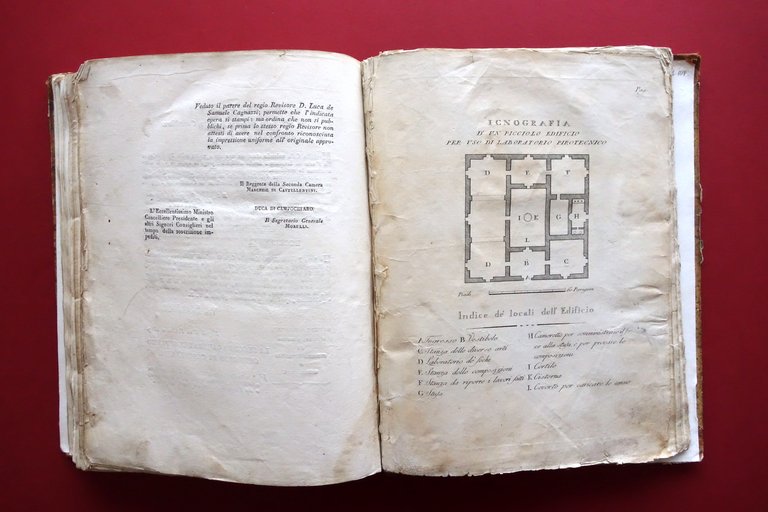 Veduto il parere del regio Revisore D. Luca de
Samuele Cagnazzi; permette che l'indicata
opera si stampi; ma ordina che non si pub-
blichi, se prima lo stesso regio Revisore non
attesti di avere nel confronto riconosciuta
la impressione uniforme all'originale appro-
vato.
Il Reggente della Seconda Camera
MARCHESE DI CASTELLENTINI.
DUCA DI CAMPOCHIARO.
L'Eccellentissimo Ministro
Cancelliere Presidente e gli
altri Signori Consiglieri nel
tempo della soscrizione im-
pediti.
Il Segretario Generale
MORELLI.
ICNOGRAFIA
D' UN PICCIOLO EDIFICIO
PER USO DI LABORATORIO PIROTECNICO
D E F
I K G H
L
D B C
A
Piedi
60 Parigini
Indice de' locali dell'Edificio
A Ingresso B Vestibolo
C Stanza delle diverse arti
D Laboratorio de' fochi
E Stanza delle composizioni
F Stanza da riporre i lavori fatti
G Stufa
H Camerotto per somministrare il
alla stufa, e per pestare le
composizioni
I Cortile
K Cisterna
L Coverto per caricare le